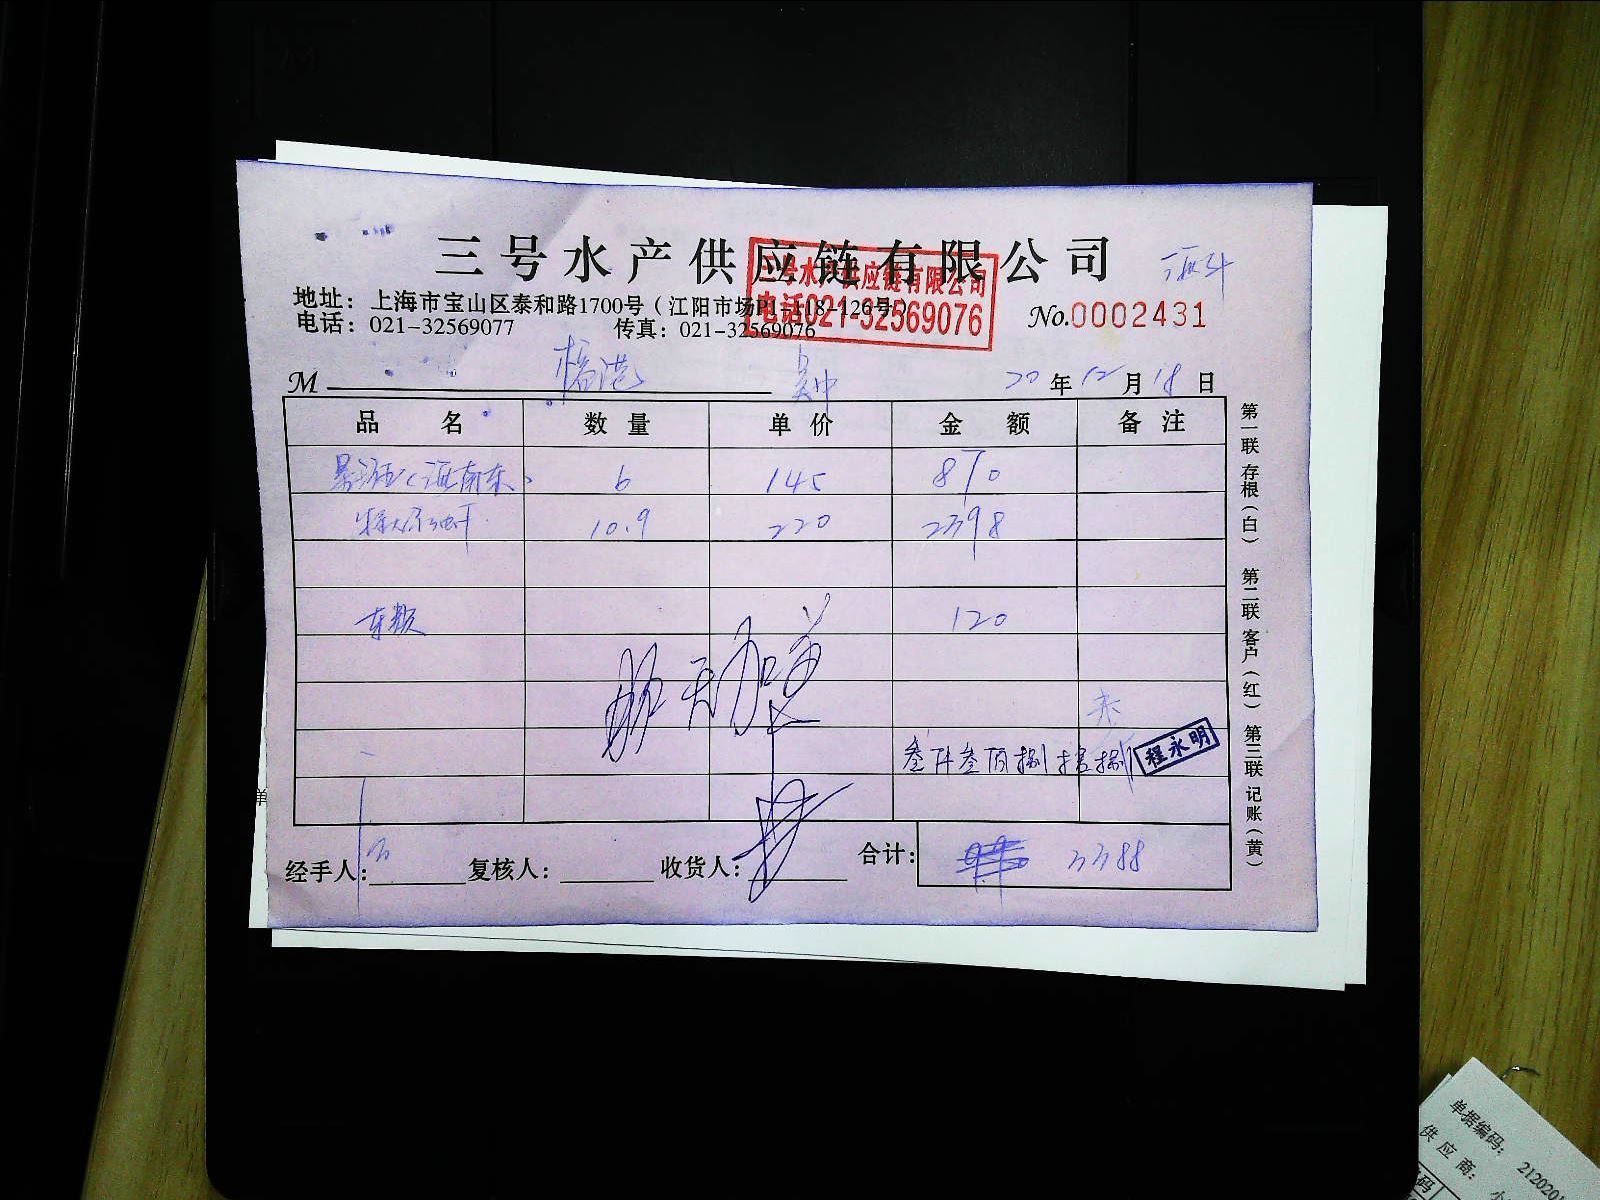 三号水产供应链有限公司
三号水产供应链有限公司
电话021-32569076
地址：上海市宝山区泰和路1700号（江阳市场P1-118-126号）
电话：021-32569077 传真：021-32569076
No.0002431
M
20年12月18日
品名 数量 单价 金额 备注
6 145 870
10.9 220 2398
车费 120
叁仟叁佰捌拾捌
程永明
经手人： 复核人： 收货人： 合计： 3388
第一联 存根（白） 第二联 客户（红） 第三联 记账（黄）
单
单据编码： 2120201
供应商：
码